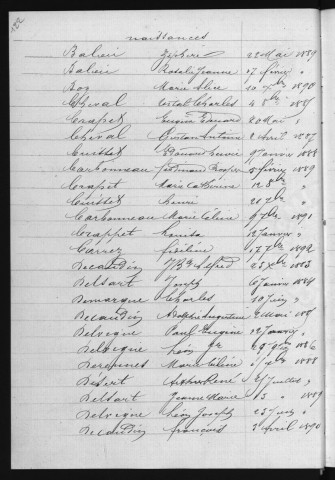 naissances
Balieu Zéphir 22 Mai 1889
Balieu Rosalie Jeanne 17 février "
Bos Marie Alice 10 Xbre 1890
Cheval Charles 4 8bre 1887
Crapet Eugène Edouard 20 Mai "
Cheval Gustave Antoine 2 Avril 1887
Cuisset Edouard 9 Janvier 1888
Carbonneau Prosper février 1889
Crapet Marie Catherine 12 8bre "
Cuisset Henri 21 7bre "
Carbonneau Marie Céline 9bre 1891
Crappet Louisa 12 Janvier "
Carrez 17 1892
Decaudin Jh Bte Alfred 23 Xbre 1883
Delsart Joseph 6 Janvier 1884
Demarque Charles 10 Juin "
Decaudin Adolphe Augustin 2 Mai 1885
Delvigne Paul Eugène 12 Janvier "
Delvigne Léon 1886
Marie Céline 1888
Désert Arthur René Juillet "
Delsart Jeanne Marie 13 " 1889
Delvigne Léon Joseph 23 Juin "
Decaudin François 3 Avril 1890